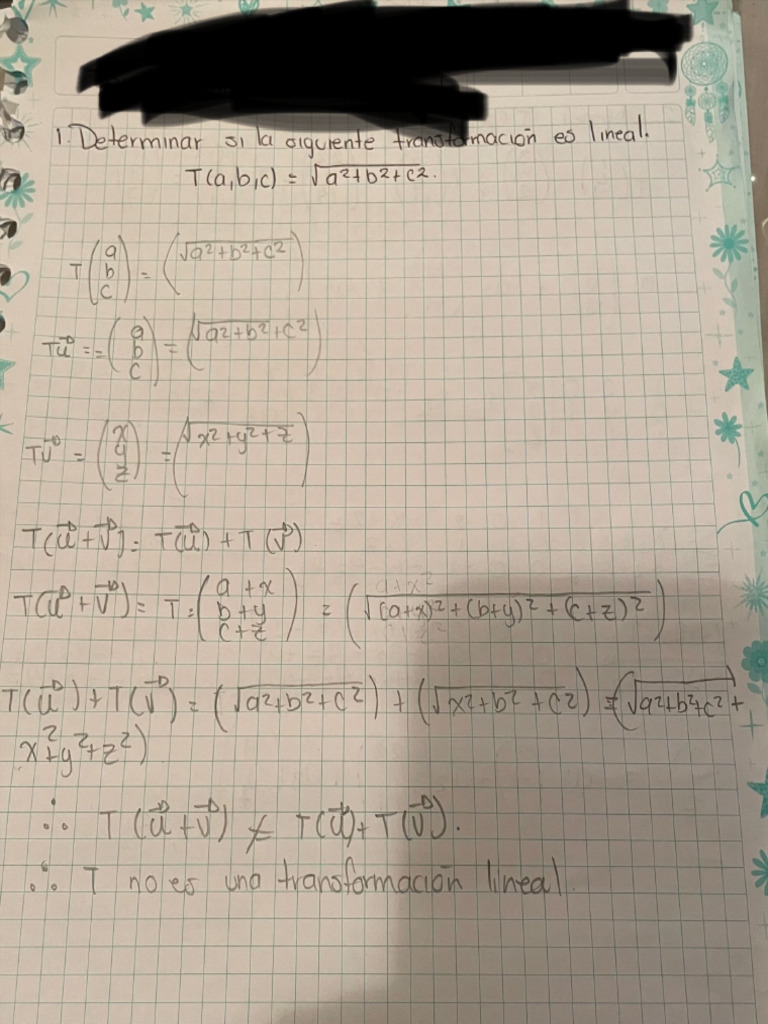 1. Determinar si la siguiente transformación es lineal.
T(a,b,c) = √a²+b²+c².
T (a b c) = (√a²+b²+c²)
Tu⃗ == (a b c) = (√a²+b²+c²)
Tv⃗ = (x y z) = (√x²+y²+z)
T(u⃗+v⃗) = T(u⃗) + T(v⃗)
T(u⃗+v⃗) = T: (a+x b+y c+z) = (√(a+x)²+(b+y)²+(c+z)²)
T(u⃗)+T(v⃗) = (√a²+b²+c²) + (√x²+b²+c²) = (√a²+b²+c²+
x²+y²+z²)
∴ T(u⃗+v⃗) ≠ T(u⃗)+T(v⃗).
∴ T no es una transformación lineal.